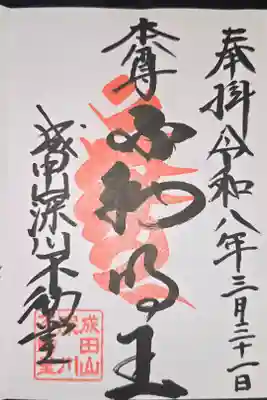 奉拝令和八年三月二十一日
本尊
不動明王
成田山深川不動堂
成田山